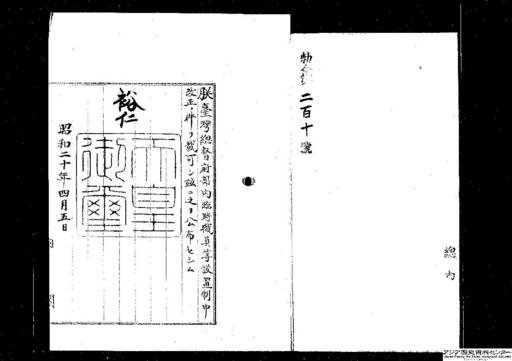 勅令第二百十號
總 内
朕臺灣總督府部内臨時職員等設置制中
改正ノ件ヲ裁可シ茲ニ之ヲ公布セシム
裕仁
天皇
御璽
昭和二十年四月五日
内閣
アジア歴史資料センター